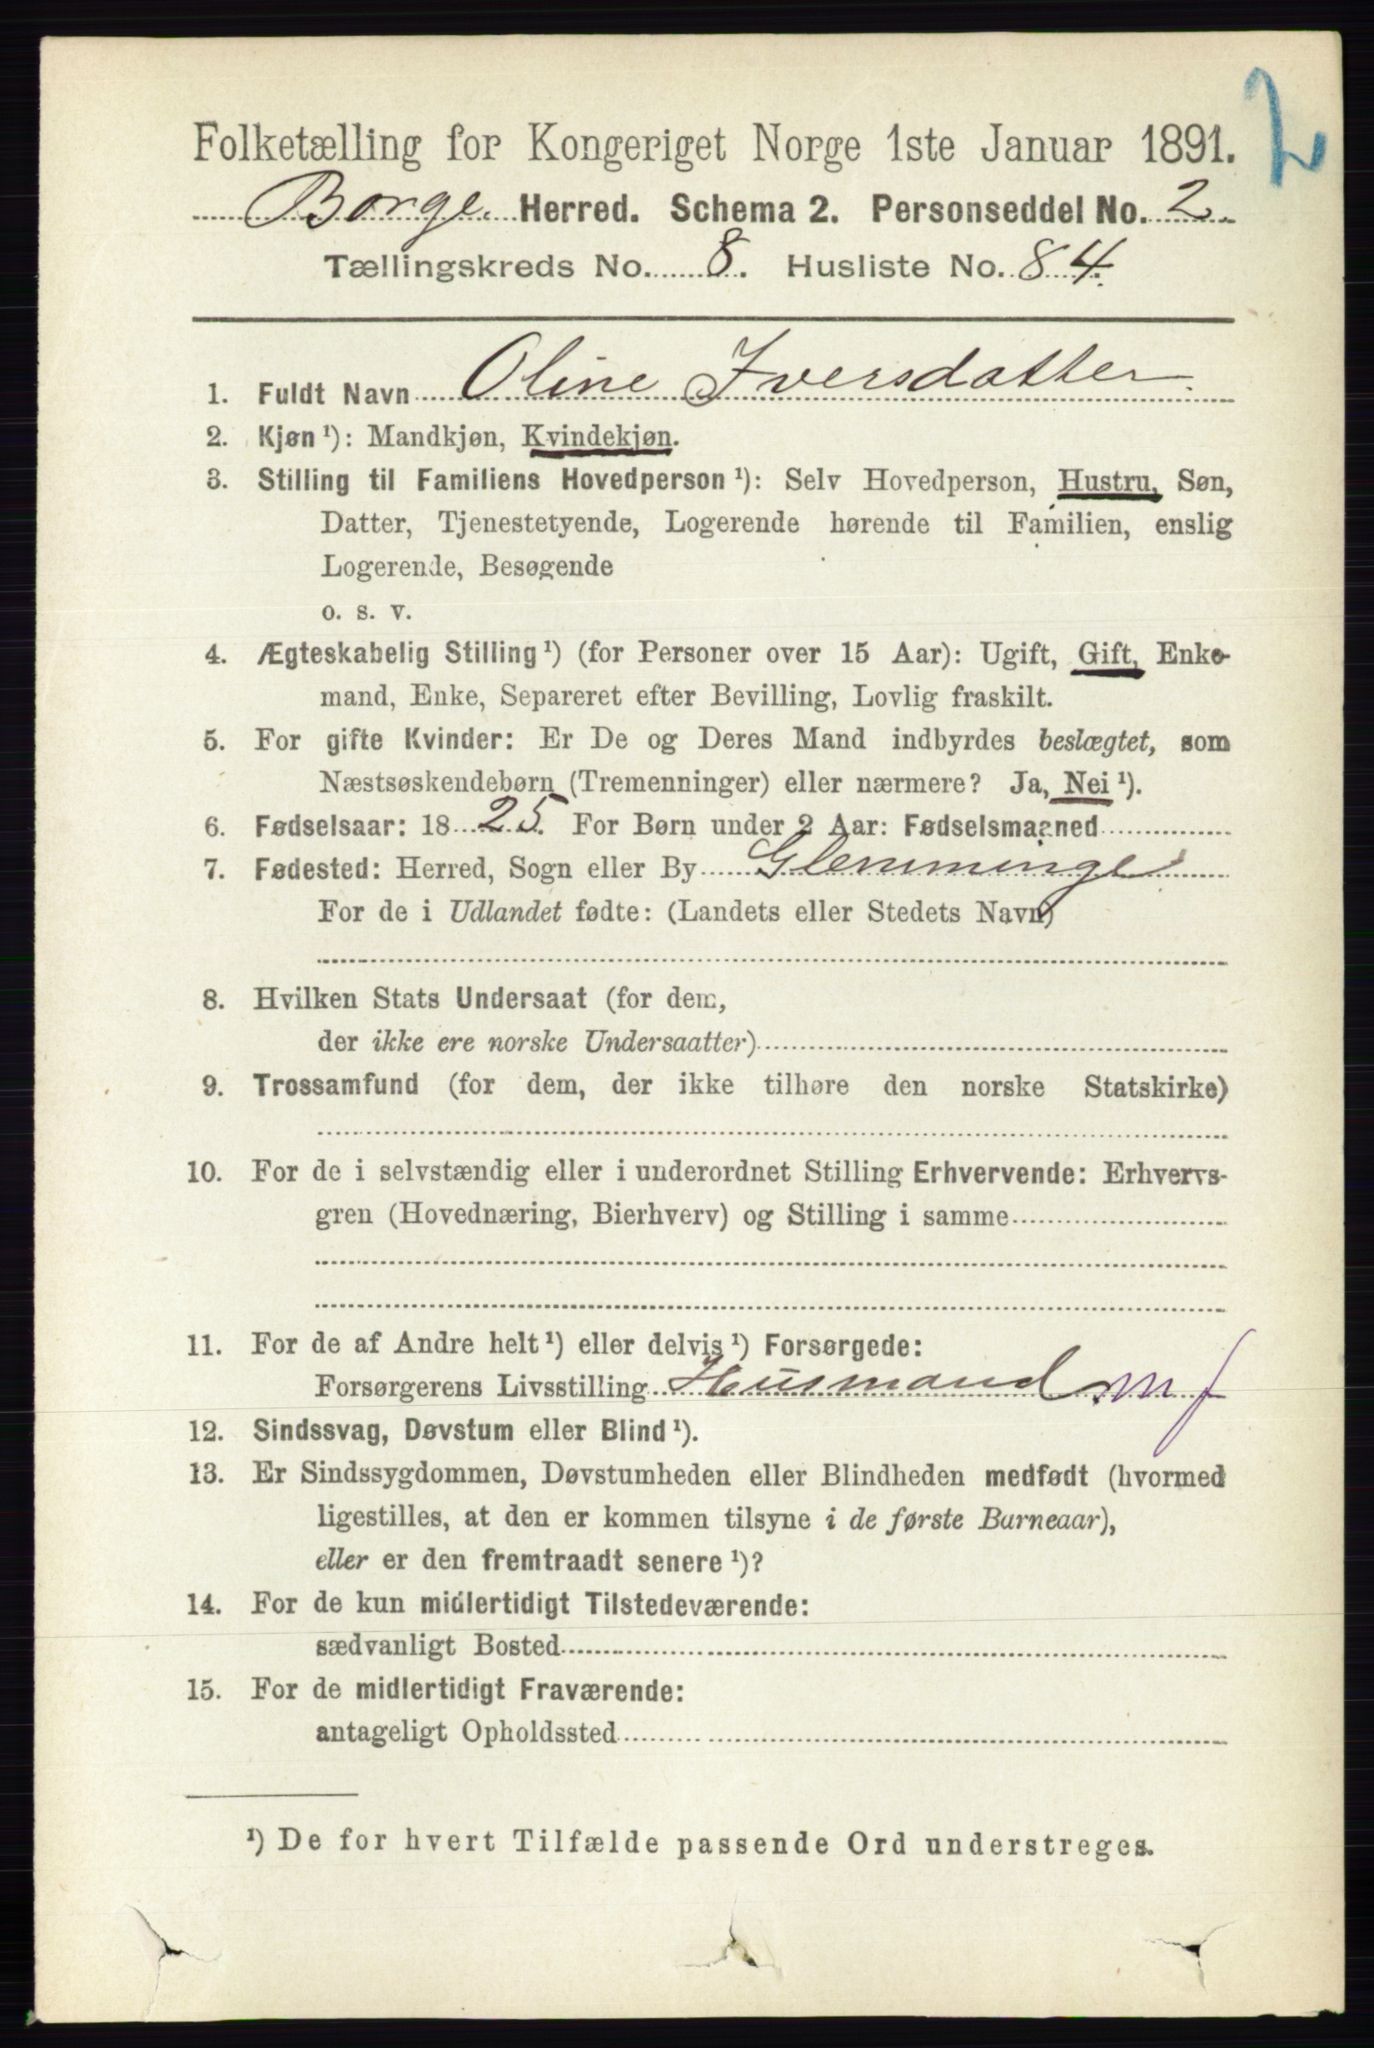 2
Folketælling for Kongeriget Norge 1ste Januar 1891.
Borge Herred. Schema 2. Personseddel No. 2.
Tællingskreds No. 8. Husliste No. 84.
1. Fuldt Navn Oline Iversdatter.
2. Kjøn ¹): Mandkjøn, Kvindekjøn.
3. Stilling til Familiens Hovedperson ¹): Selv Hovedperson, Hustru, Søn,
Datter, Tjenestetyende, Logerende hørende til Familien, enslig
Logerende, Besøgende
o. s. v.
4. Ægteskabelig Stilling ¹) (for Personer over 15 Aar): Ugift, Gift, Enke-
mand, Enke, Separeret efter Bevilling, Lovlig fraskilt.
5. For gifte Kvinder: Er De og Deres Mand indbyrdes beslægtet, som
Næstsøskendebørn (Tremenninger) eller nærmere? Ja, Nei ¹).
6. Fødselsaar: 18 25. For Børn under 2 Aar: Fødselsmaaned
7. Fødested: Herred, Sogn eller By Glemminge
For de i Udlandet fødte: (Landets eller Stedets Navn)
8. Hvilken Stats Undersaat (for dem,
der ikke ere norske Undersaatter)
9. Trossamfund (for dem, der ikke tilhøre den norske Statskirke)
10. For de i selvstændig eller i underordnet Stilling Erhvervende: Erhvervs-
gren (Hovednæring, Bierhverv) og Stilling i samme
11. For de af Andre helt ¹) eller delvis ¹) Forsørgede:
Forsørgerens Livsstilling Husmand m f
12. Sindssvag, Døvstum eller Blind ¹).
13. Er Sindssygdommen, Døvstumheden eller Blindheden medfødt (hvormed
ligestilles, at den er kommen tilsyne i de første Barneaar),
eller er den fremtraadt senere ¹)?
14. For de kun midlertidigt Tilstedeværende:
sædvanligt Bosted
15. For de midlertidigt Fraværende:
antageligt Opholdssted
¹) De for hvert Tilfælde passende Ord understreges.